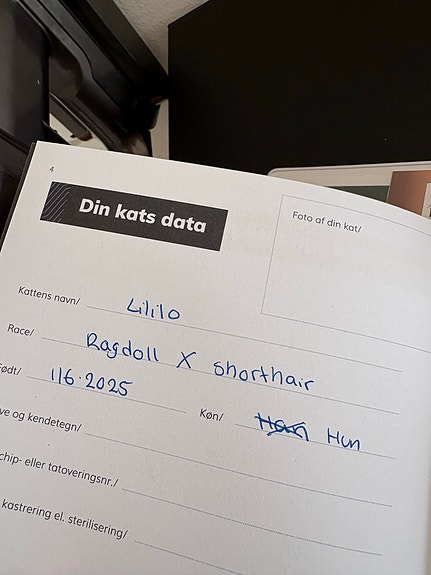 4
Din kats data
Foto af din kat/
Kattens navn/ Lililo
Race/ Ragdoll X shorthair
Født/ 1/6·2025 Køn/ Han Hun
ve og kendetegn/
chip- eller tatoveringsnr./
kastrering el. sterilisering/